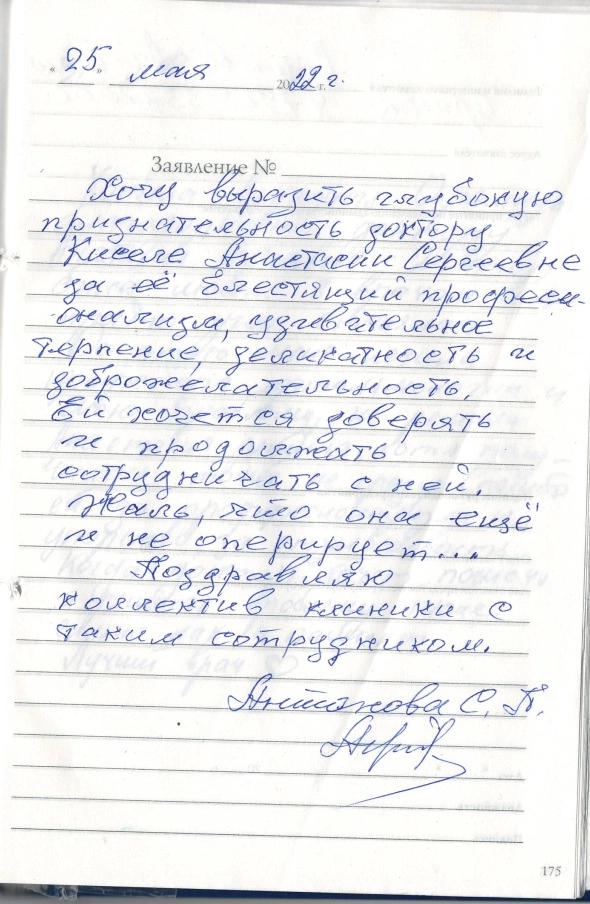 « 25 » мая 2022 г.
Заявление №
Хочу выразить глубокую
признательность доктору
Киселе Анастасии Сергеевне
за её блестящий професси-
онализм, удивительное
терпение, деликатность и
доброжелательность.
Ей хочется доверять
и продолжать
сотрудничать с ней.
Жаль, что она ещё
и не оперирует...
Поздравляю
коллектив клиники с
таким сотрудником.
С. П.
175